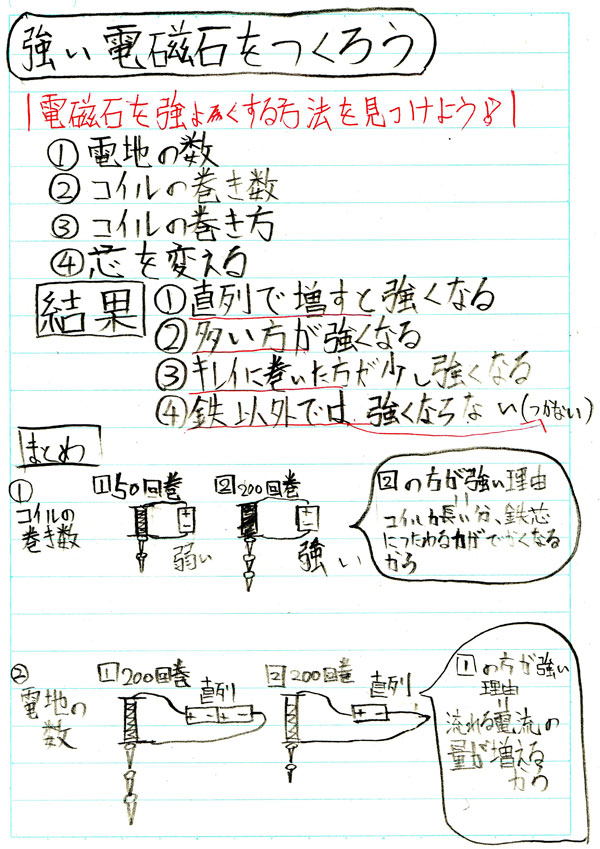 強い電磁石をつくろう
電磁石を強くする方法を見つけよう!
① 電地の数
② コイルの巻き数
③ コイルの巻き方
④ 芯を変える
結果
① 直列で増すと強くなる
② 多い方が強くなる
③ キレイに巻いた方が少し強くなる
④ 鉄以外では強くならない(つかない)
まとめ
①
コイルの
巻き数
1 50回巻
弱い
2 200回巻
強い
2の方が強い理由
=
コイルが長い分、鉄芯
につたわる力がでかくなる
から
②
電地の
数
1 200回巻
直列
+ - + -
2 200回巻
直列
+ -
1の方が強い
理由
=
流れる電流の
量が増える
から